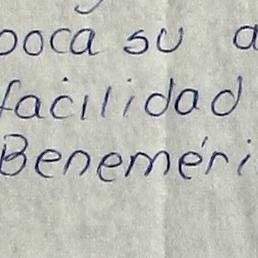 poca su a
facilidad
Beneméri